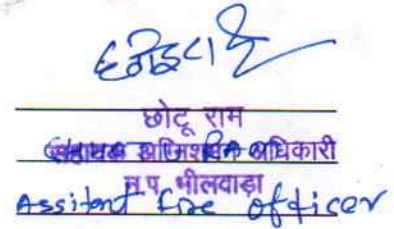 छोटू राम
सहायक अग्निशमन अधिकारी
न.प. भीलवाड़ा
Assitent fire officer